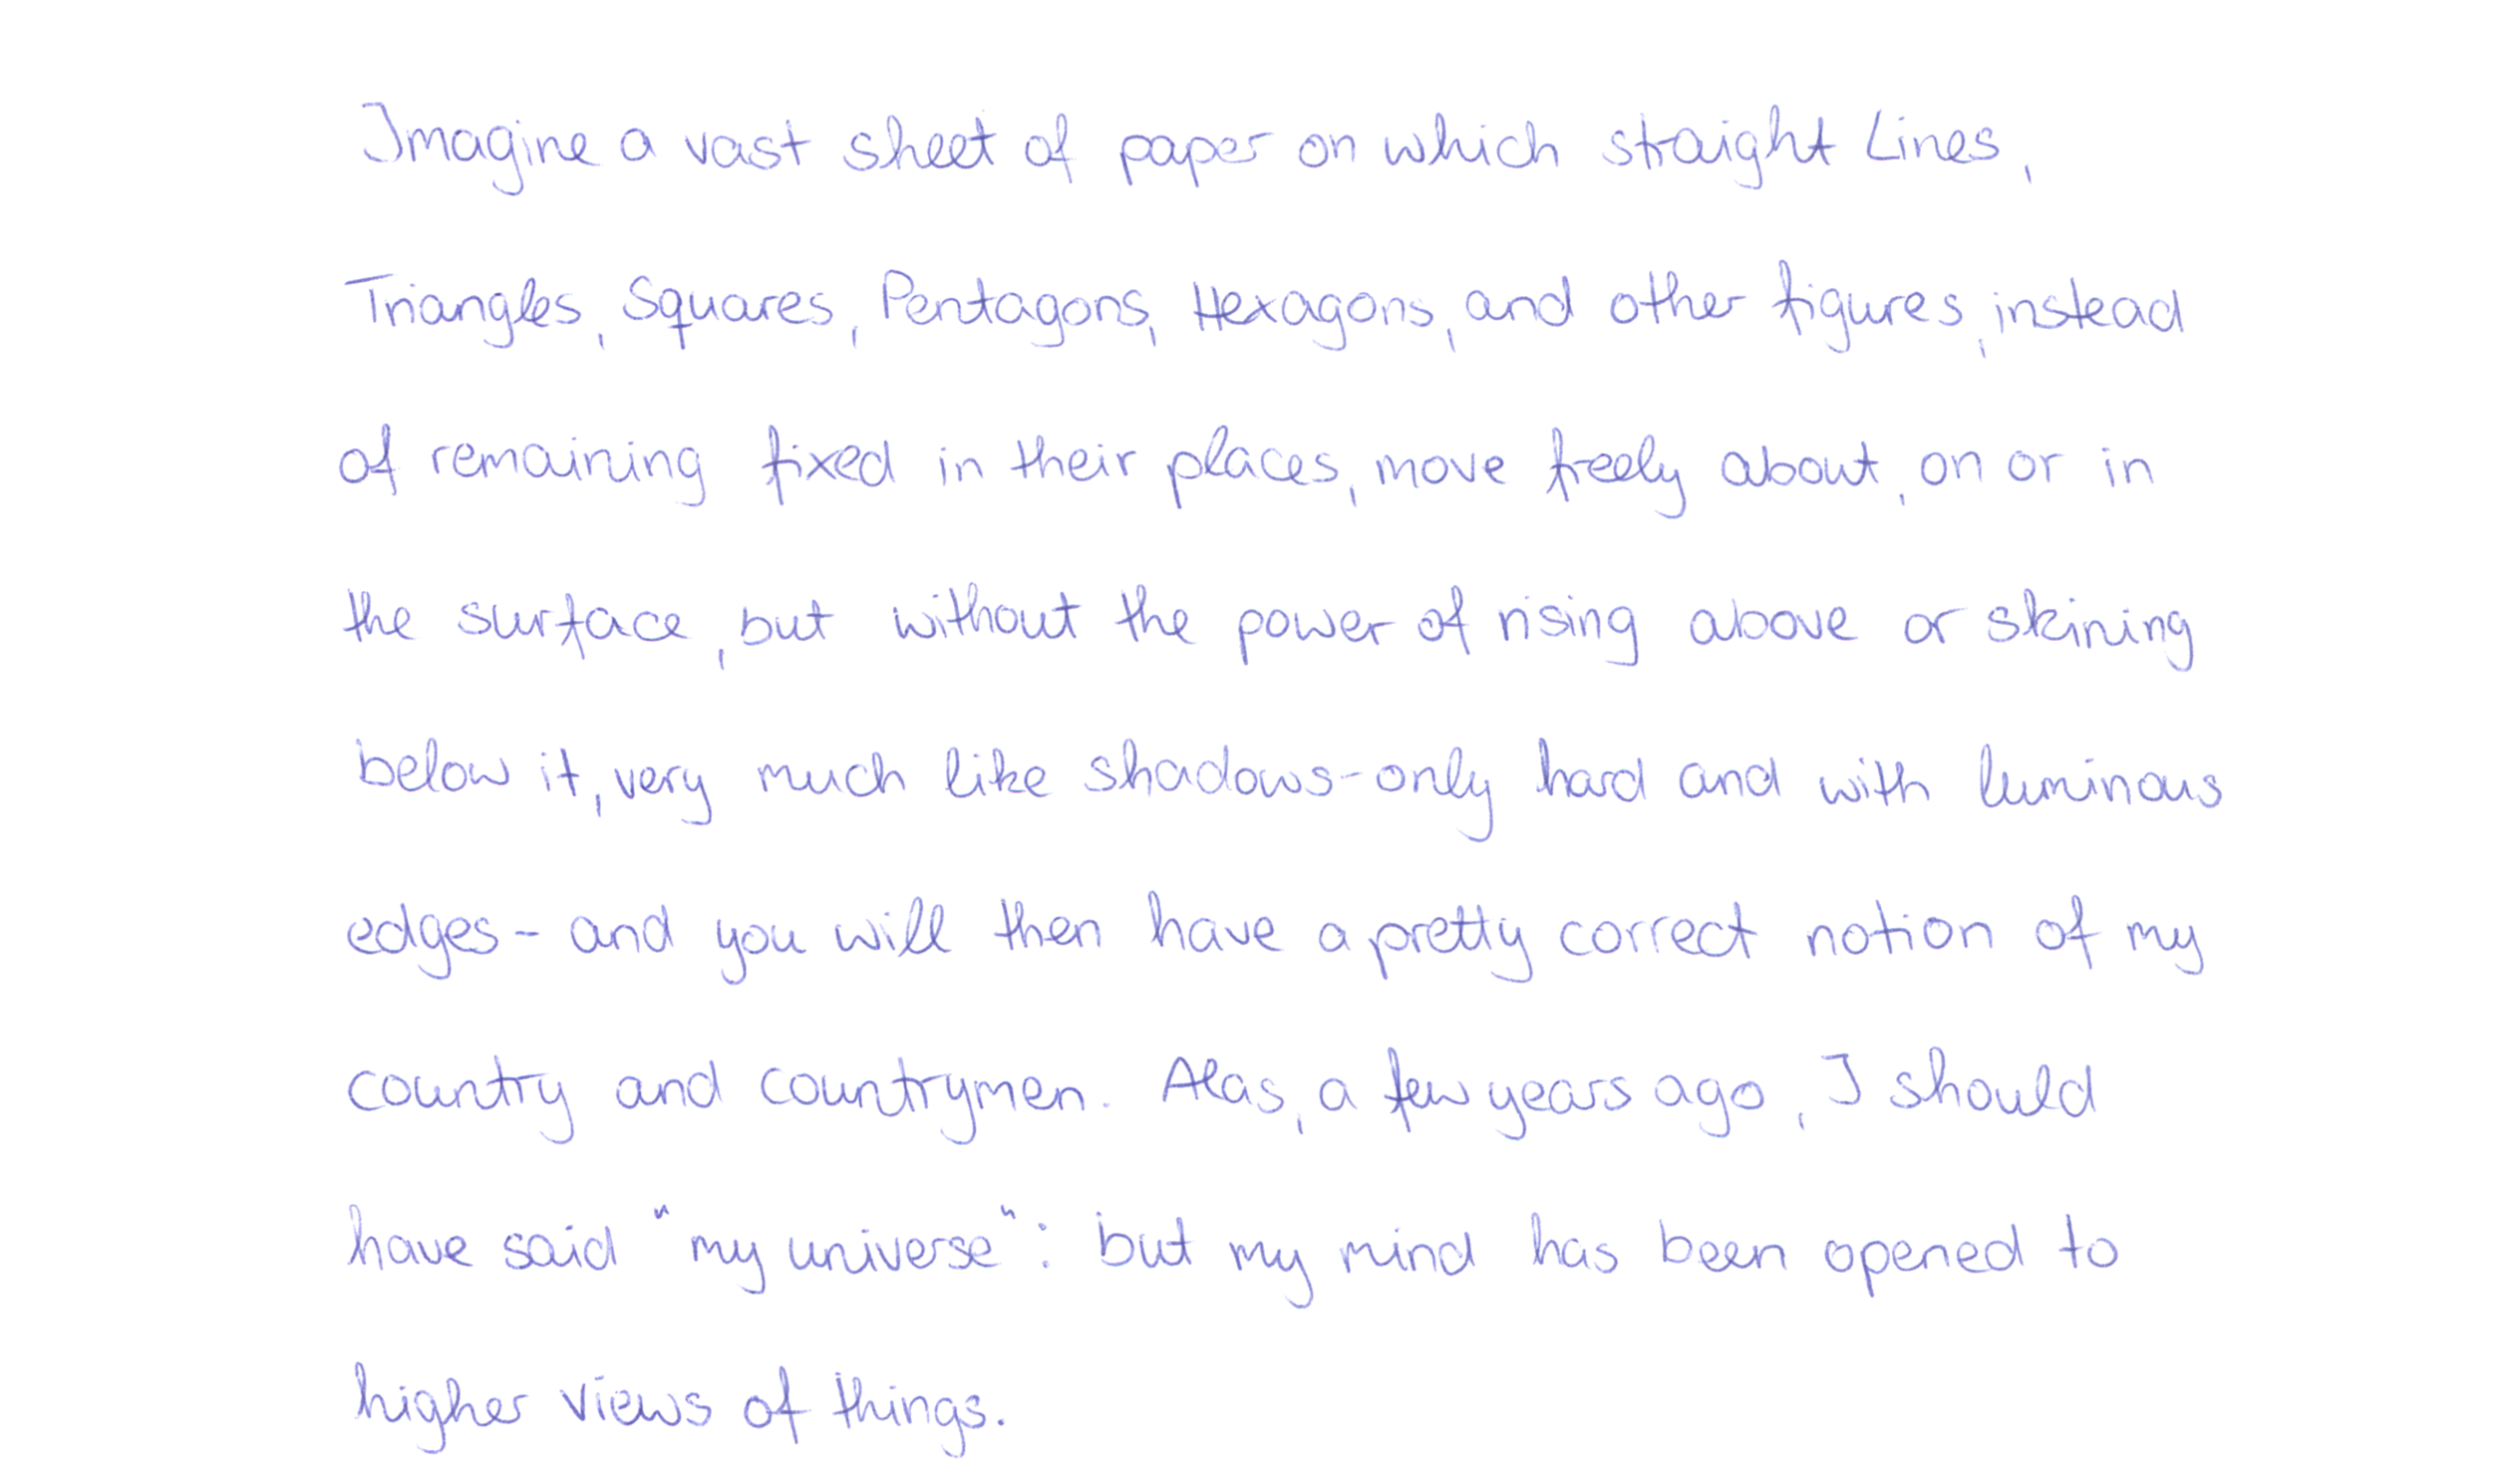 Imagine a vast sheet of paper on which straight Lines,
Triangles, Squares, Pentagons, Hexagons, and other figures, instead
of remaining fixed in their places, move freely about, on or in
the surface, but without the power of rising above or skining
below it, very much like shadows-only hard and with luminous
edges- and you will then have a pretty correct notion of my
country and countrymen. Alas, a few years ago, I should
have said "my universe": but my mind has been opened to
higher views of things.